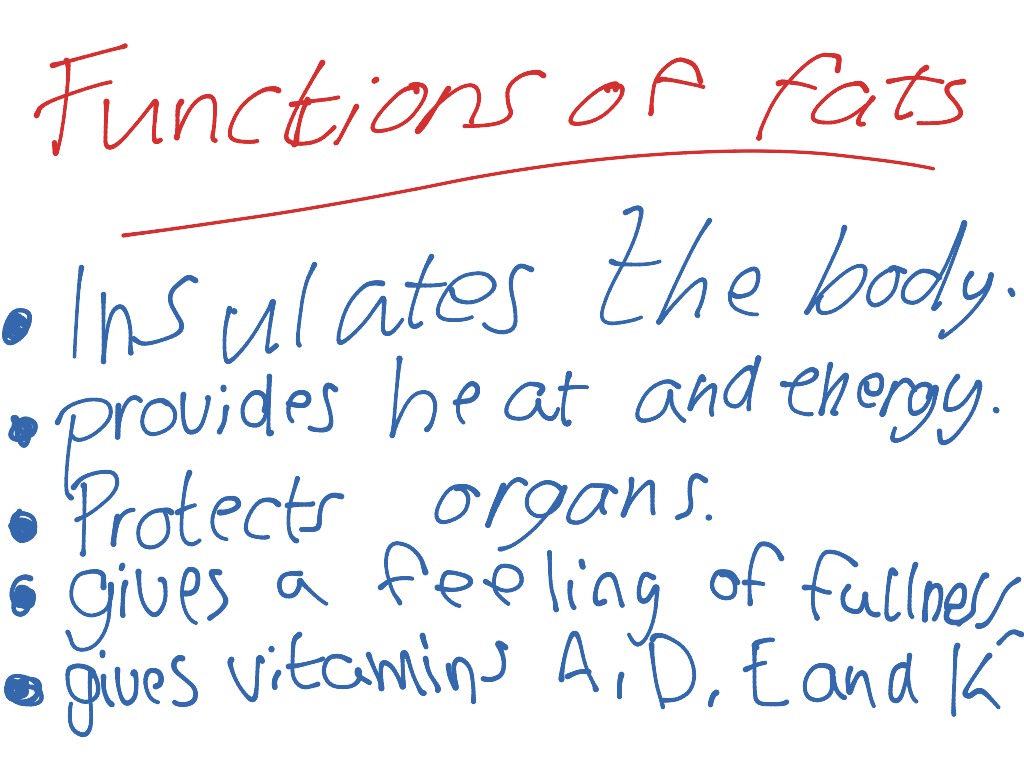 Functions of fats
• Insulates the body.
• provides heat and energy.
• Protects organs.
• gives a feeling of fullness
• gives vitamins A, D, E and K